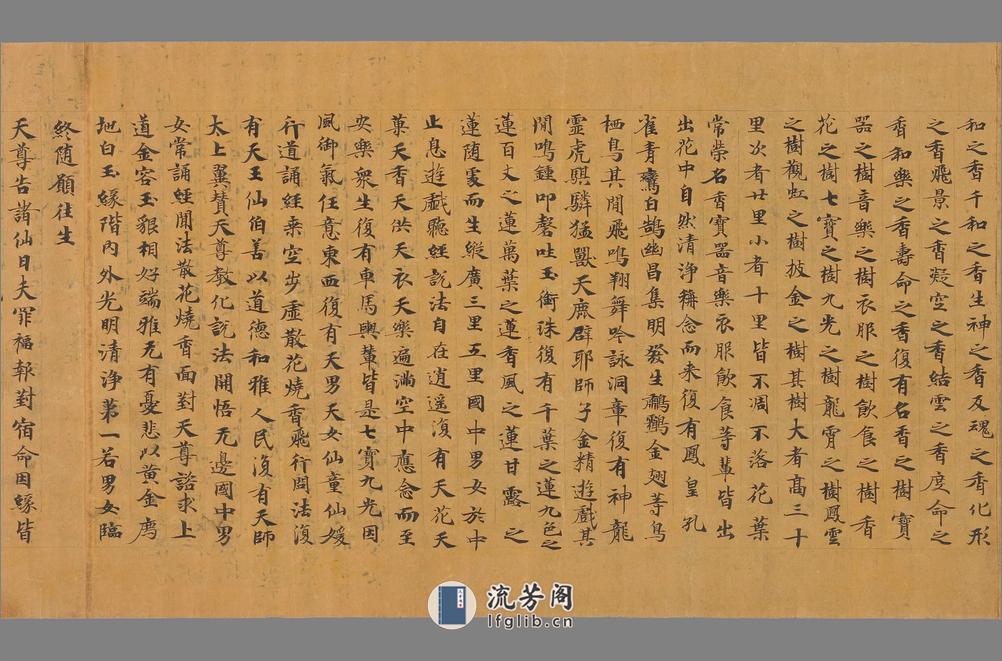 和之香千和之香生神之香及魂之香化形
之香飛景之香凝空之香結雲之香度命之
香和樂之香壽命之香復有名香之樹寶
器之樹音樂之樹衣服之樹飲食之樹香
花之樹七寶之樹九光之樹龍霄之樹鳳雲
之樹觀虹之樹披金之樹其樹大者高三十
里次者廿里小者十里皆不凋不落花葉
常榮名香寶器音樂衣服飲食等輩皆出
出花中自然清淨稱念而来復有鳳皇孔
雀青鸞白鵠幽昌集明發生鷫鸘金翅等鳥
栖鳥其閒飛鳴翔舞吟詠洞章復有神龍
靈虎騏驎猛獸天鹿辟耶師子金精遊戲其
閒鳴鍾叩磬吐玉銜珠復有千葉之蓮九色之
蓮百丈之蓮萬葉之蓮香風之蓮甘露之
蓮随處而生縱廣三里五里國中男女於中
止息遊戲聽經說法自在逍遥復有天花天
菓天香天洪天衣天樂遍滿空中應念而至
安樂衆生復有車馬輿輦皆是七寶九光因
風御氣任意東西復有天男天女仙童仙媛
行道誦經乘空步虛散花燒香飛行問法復
有天王仙伯善以道德和雅人民復有天師
太上翼賛天尊教化說法開悟无邊國中男
女常誦經聞法散花燒香面對天尊諮求上
道金容玉貌相好端雅无有憂悲以黄金為
地白玉緣階內外光明清淨第一若男女臨
終随願往生
天尊告諸仙曰夫罪福報對宿命因緣皆
流芳阁
lfglib.cn